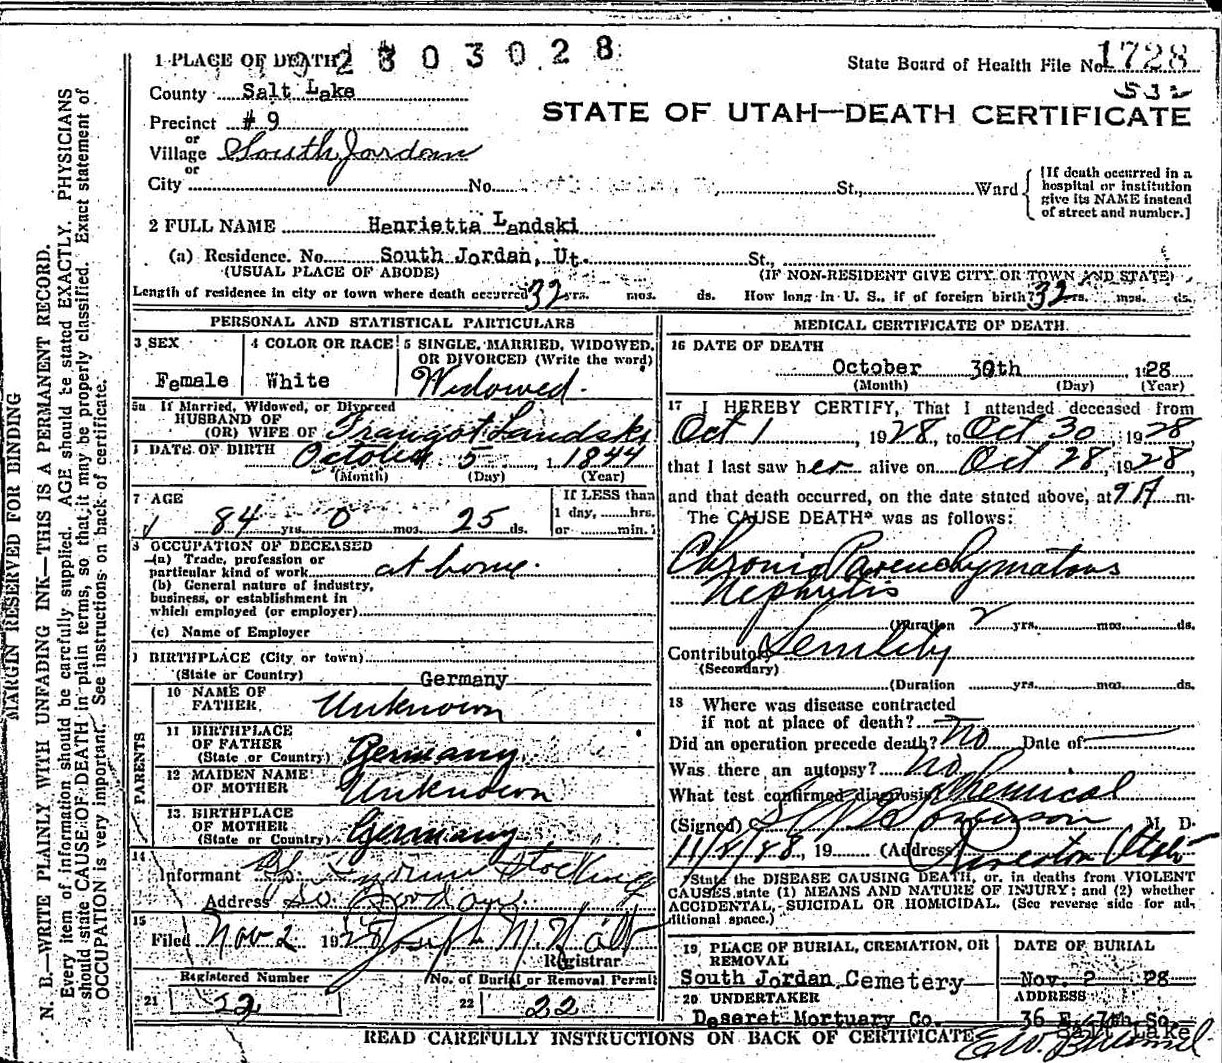 1 PLACE OF DEATH 2803028
State Board of Health File No. 1728
532
County Salt Lake
STATE OF UTAH—DEATH CERTIFICATE
Precinct #9
or
Village South Jordan
or
City No. St., Ward
[If death occurred in a
hospital or institution
give its NAME instead
of street and number.]
2 FULL NAME Henrietta Landski
(a) Residence. No. South Jordan, Ut. St.,
(USUAL PLACE OF ABODE) (IF NON-RESIDENT GIVE CITY OR TOWN AND STATE)
Length of residence in city or town where death occurred 32 yrs. mos. ds. How long in U. S., if of foreign birth? 32 yrs. mos. ds.
PERSONAL AND STATISTICAL PARTICULARS
3 SEX
Female
4 COLOR OR RACE
White
5 SINGLE, MARRIED, WIDOWED,
OR DIVORCED (Write the word)
Widowed.
5a If Married, Widowed, or Divorced
HUSBAND OF
(OR) WIFE OF Traugot Landski
DATE OF BIRTH October 5, 1844
(Month) (Day) (Year)
7 AGE
84 yrs. 0 mos. 25 ds.
If LESS than
1 day, hrs.
or min.
8 OCCUPATION OF DECEASED
(a) Trade, profession or
particular kind of work at home.
(b) General nature of industry,
business, or establishment in
which employed (or employer)
(c) Name of Employer
BIRTHPLACE (City or town)
(State or Country) Germany
PARENTS
10 NAME OF
FATHER Unknown
11 BIRTHPLACE
OF FATHER
(State or Country) Germany
12 MAIDEN NAME
OF MOTHER Unknown
13 BIRTHPLACE
OF MOTHER
(State or Country) Germany
14
Informant Stocking
Address So Jordan
15
Filed Nov 2 1928 Joseph M. Holt
Registrar
Registered Number
21 22
No. of Burial or Removal Permit
22 22
MEDICAL CERTIFICATE OF DEATH
16 DATE OF DEATH
October 30th 1928
(Month) (Day) (Year)
17 I HEREBY CERTIFY, That I attended deceased from
Oct 1, 1928, to Oct 30, 1928,
that I last saw her alive on Oct 28, 1928,
and that death occurred, on the date stated above, at 9 A m.
The CAUSE DEATH* was as follows:
Chronic Parenchymatous
Nephritis
(Duration 2 yrs. mos. ds.
Contributory Senility
(Secondary)
(Duration yrs. mos. ds.
18 Where was disease contracted
if not at place of death?
Did an operation precede death? No Date of
Was there an autopsy? no
What test confirmed diagnosis? Chemical
(Signed) M. D.
11/2/28, 19 (Address) Utah
*State the DISEASE CAUSING DEATH, or, in deaths from VIOLENT
CAUSES, state (1) MEANS AND NATURE OF INJURY; and (2) whether
ACCIDENTAL, SUICIDAL OR HOMICIDAL. (See reverse side for ad-
ditional space.)
19 PLACE OF BURIAL, CREMATION, OR
REMOVAL
South Jordan Cemetery
DATE OF BURIAL
Nov. 2 28
20 UNDERTAKER
Deseret Mortuary Co.
ADDRESS
36 E. 7th So.
Salt Lake
READ CAREFULLY INSTRUCTIONS ON BACK OF CERTIFICATE
MARGIN RESERVED FOR BINDING
N. B.—WRITE PLAINLY WITH UNFADING INK—THIS IS A PERMANENT RECORD.
Every item of information should be carefully supplied. AGE should be stated EXACTLY. PHYSICIANS
should state CAUSE OF DEATH in plain terms, so that it may be properly classified. Exact statement of
OCCUPATION is very important. See instructions on back of certificate.